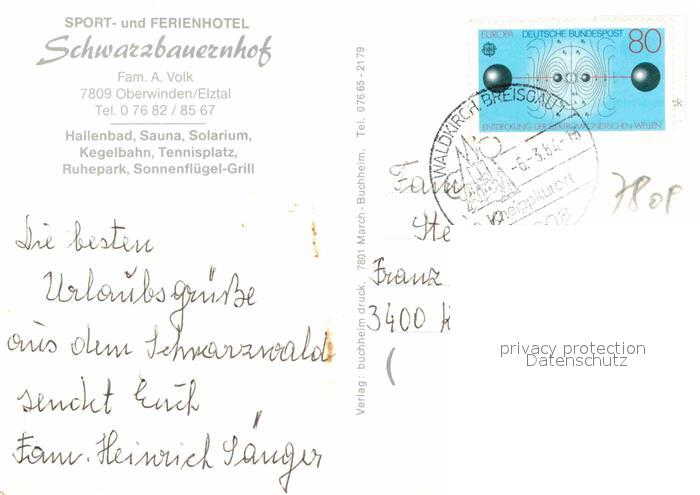 SPORT- und FERIENHOTEL
Schwarzbauernhof
Fam. A. Volk
7809 Oberwinden/Elztal
Tel. 0 76 82 / 85 67
Hallenbad, Sauna, Solarium,
Kegelbahn, Tennisplatz,
Ruhepark, Sonnenflügel-Grill
Die besten
Urlaubsgrüße
aus dem Schwarzwald
sendet Euch
Fam. Heinrich Sänger
Verlag: buchheim druck, 7801 March-Buchheim, Tel. 076 65 - 21 79
EUROPA DEUTSCHE BUNDESPOST 80
ENTDECKUNG DER ELEKTROMAGNETISCHEN WELLEN
WALDKIRCH, BREISGAU 1
-6.-3.84-15
Kneippkurort
7808
Fam
Ste
Franz
3400 K
privacy protection
Datenschutz